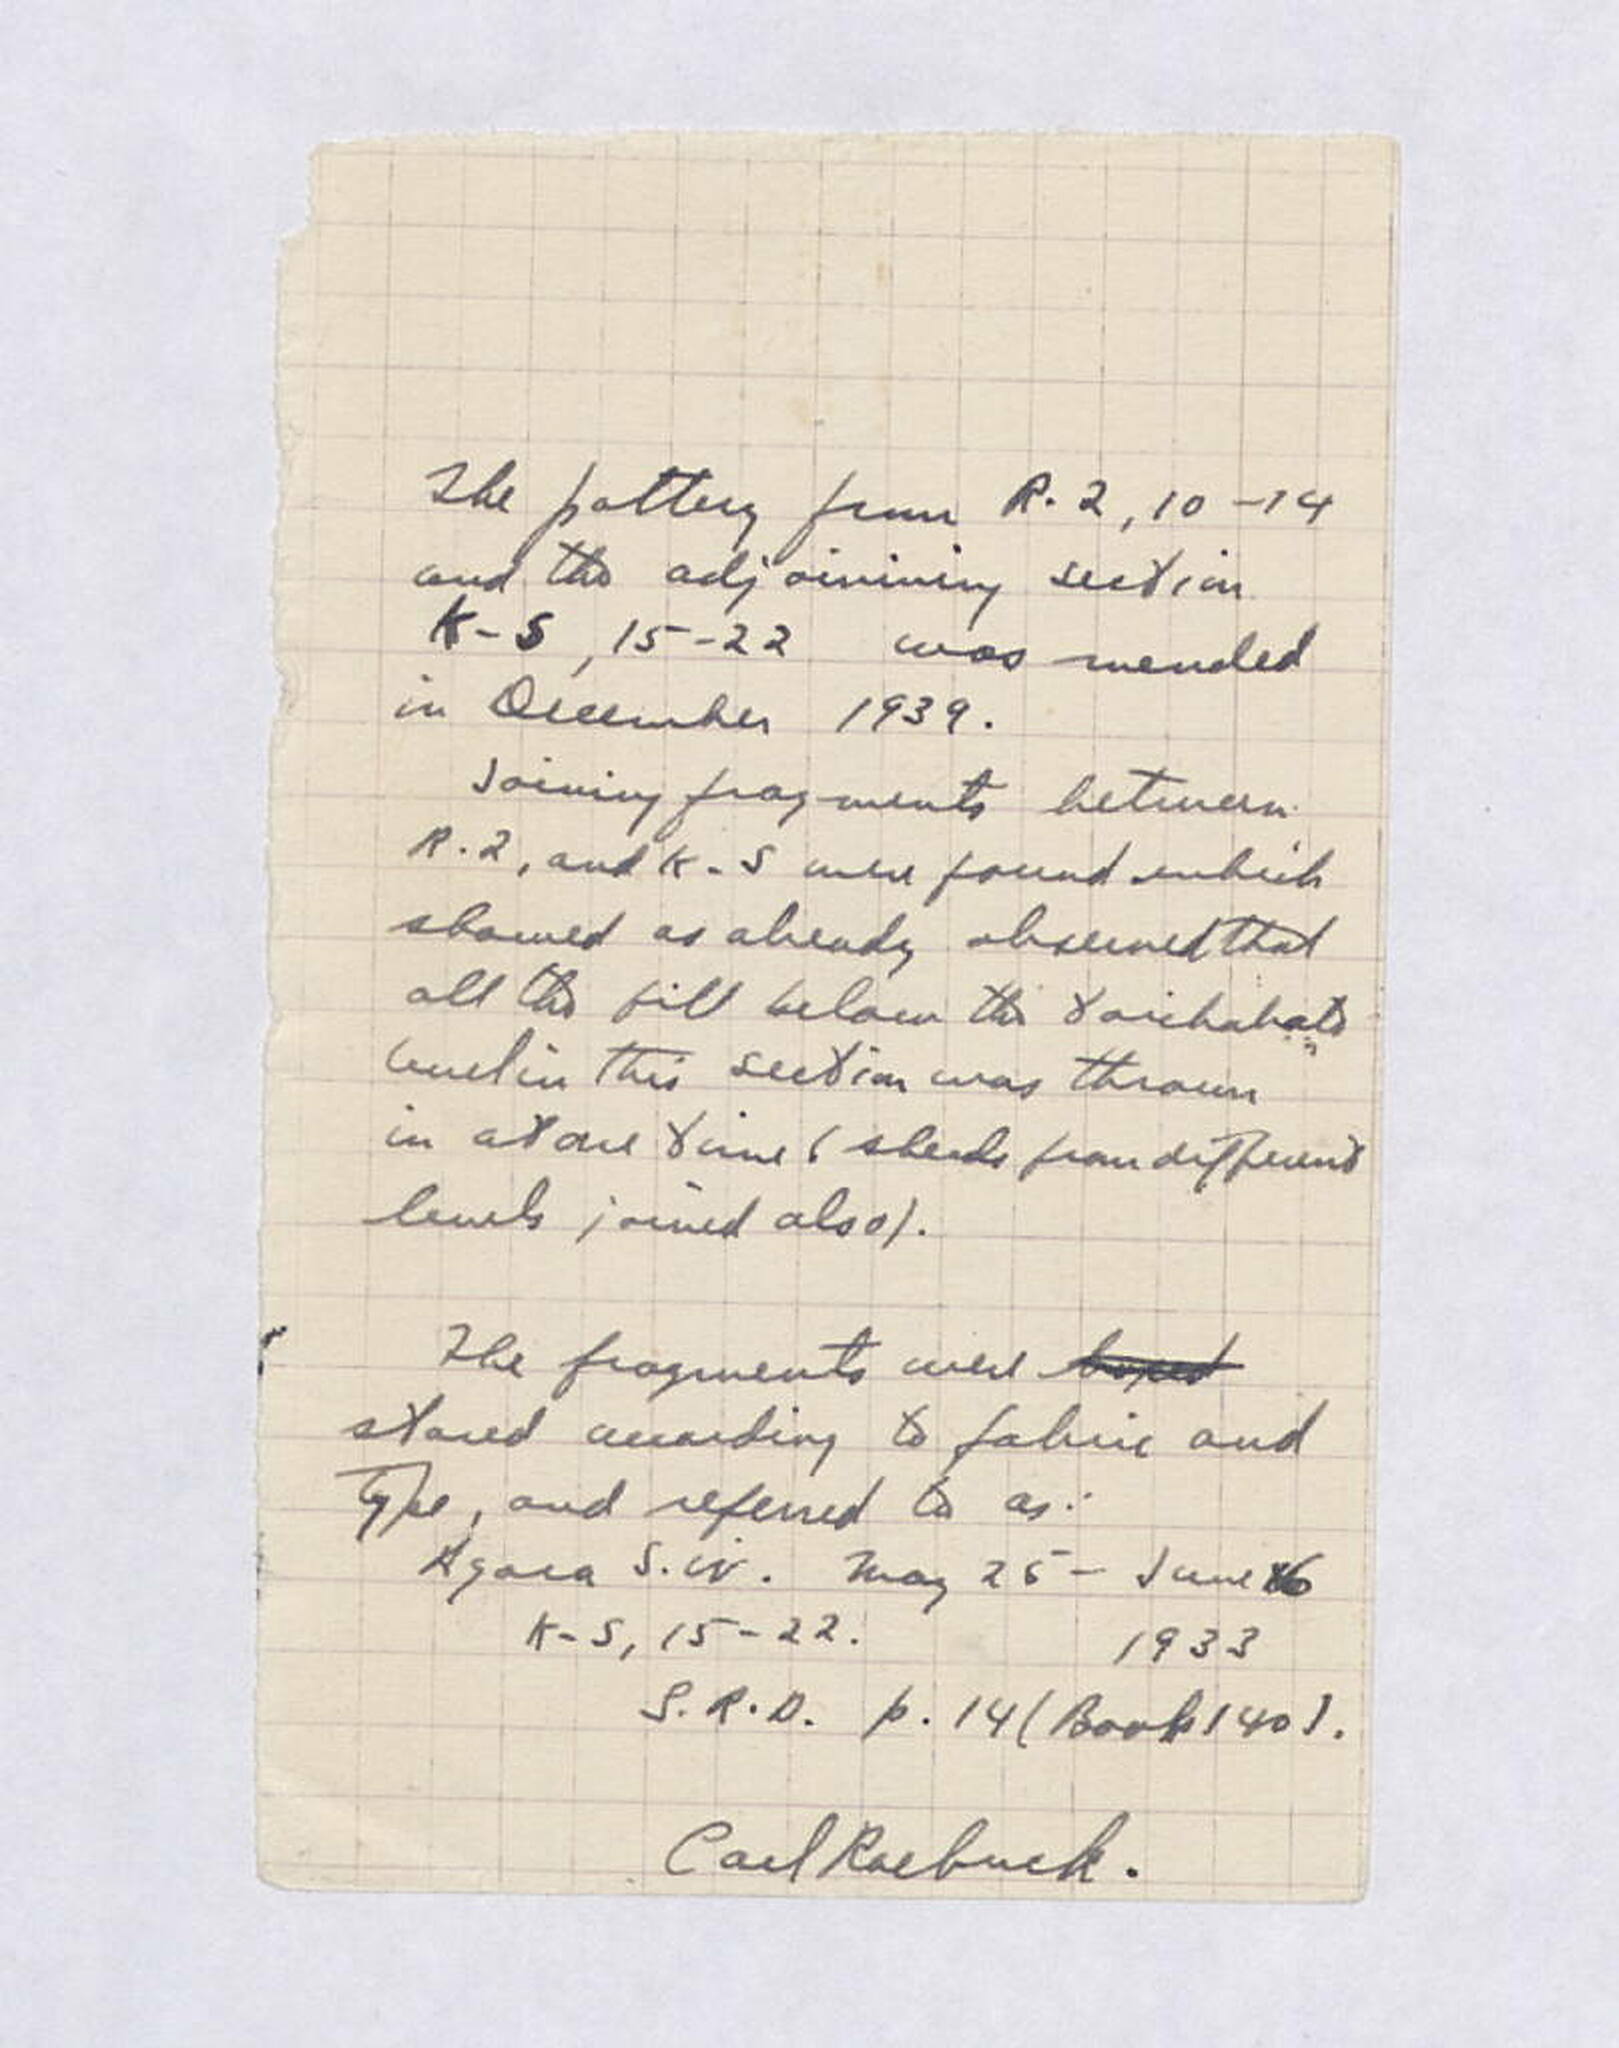 The pottery from R.2, 10-14
and the adjoinining section
K-S, 15-22 was mended
in December 1939.
Joining fragments between
R.2, and K-S were found which
showed as already observed that
all the fill below the
level in this section was thrown
in at one time (sherds from different
levels joined also).
The fragments were boxed
stored according to fabric and
type, and referred to as:
Agora S.W. May 25 - June 16
K-S, 15-22. 1933
S.R.D. p. 14 (Book 140).
Carl Roebuck.